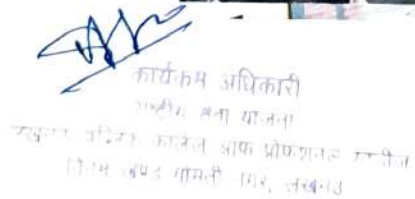 कार्यक्रम अधिकारी
राष्ट्रीय सेवा योजना
पब्लिक कालेज आफ प्रोफेशनल स्टडीज
विनय खण्ड गोमती नगर, लखनऊ